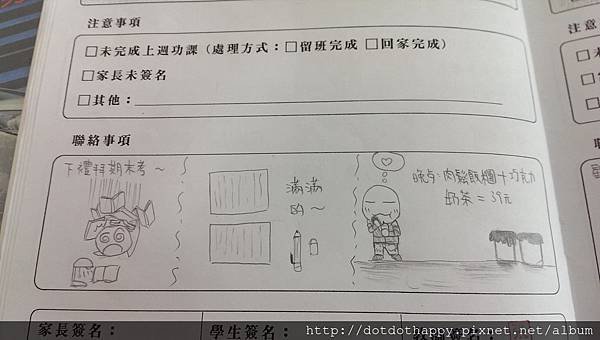 注意事項
□未完成上週功課 (處理方式：□留班完成 □回家完成)
□家長未簽名
□其他：
聯絡事項
下禮拜期末考～
滿滿
的～
晚点：肉鬆飯糰+巧克力
奶茶 = 39元
家長簽名：
學生簽名：
http://dotdothappy.pixnet.net/album
注意